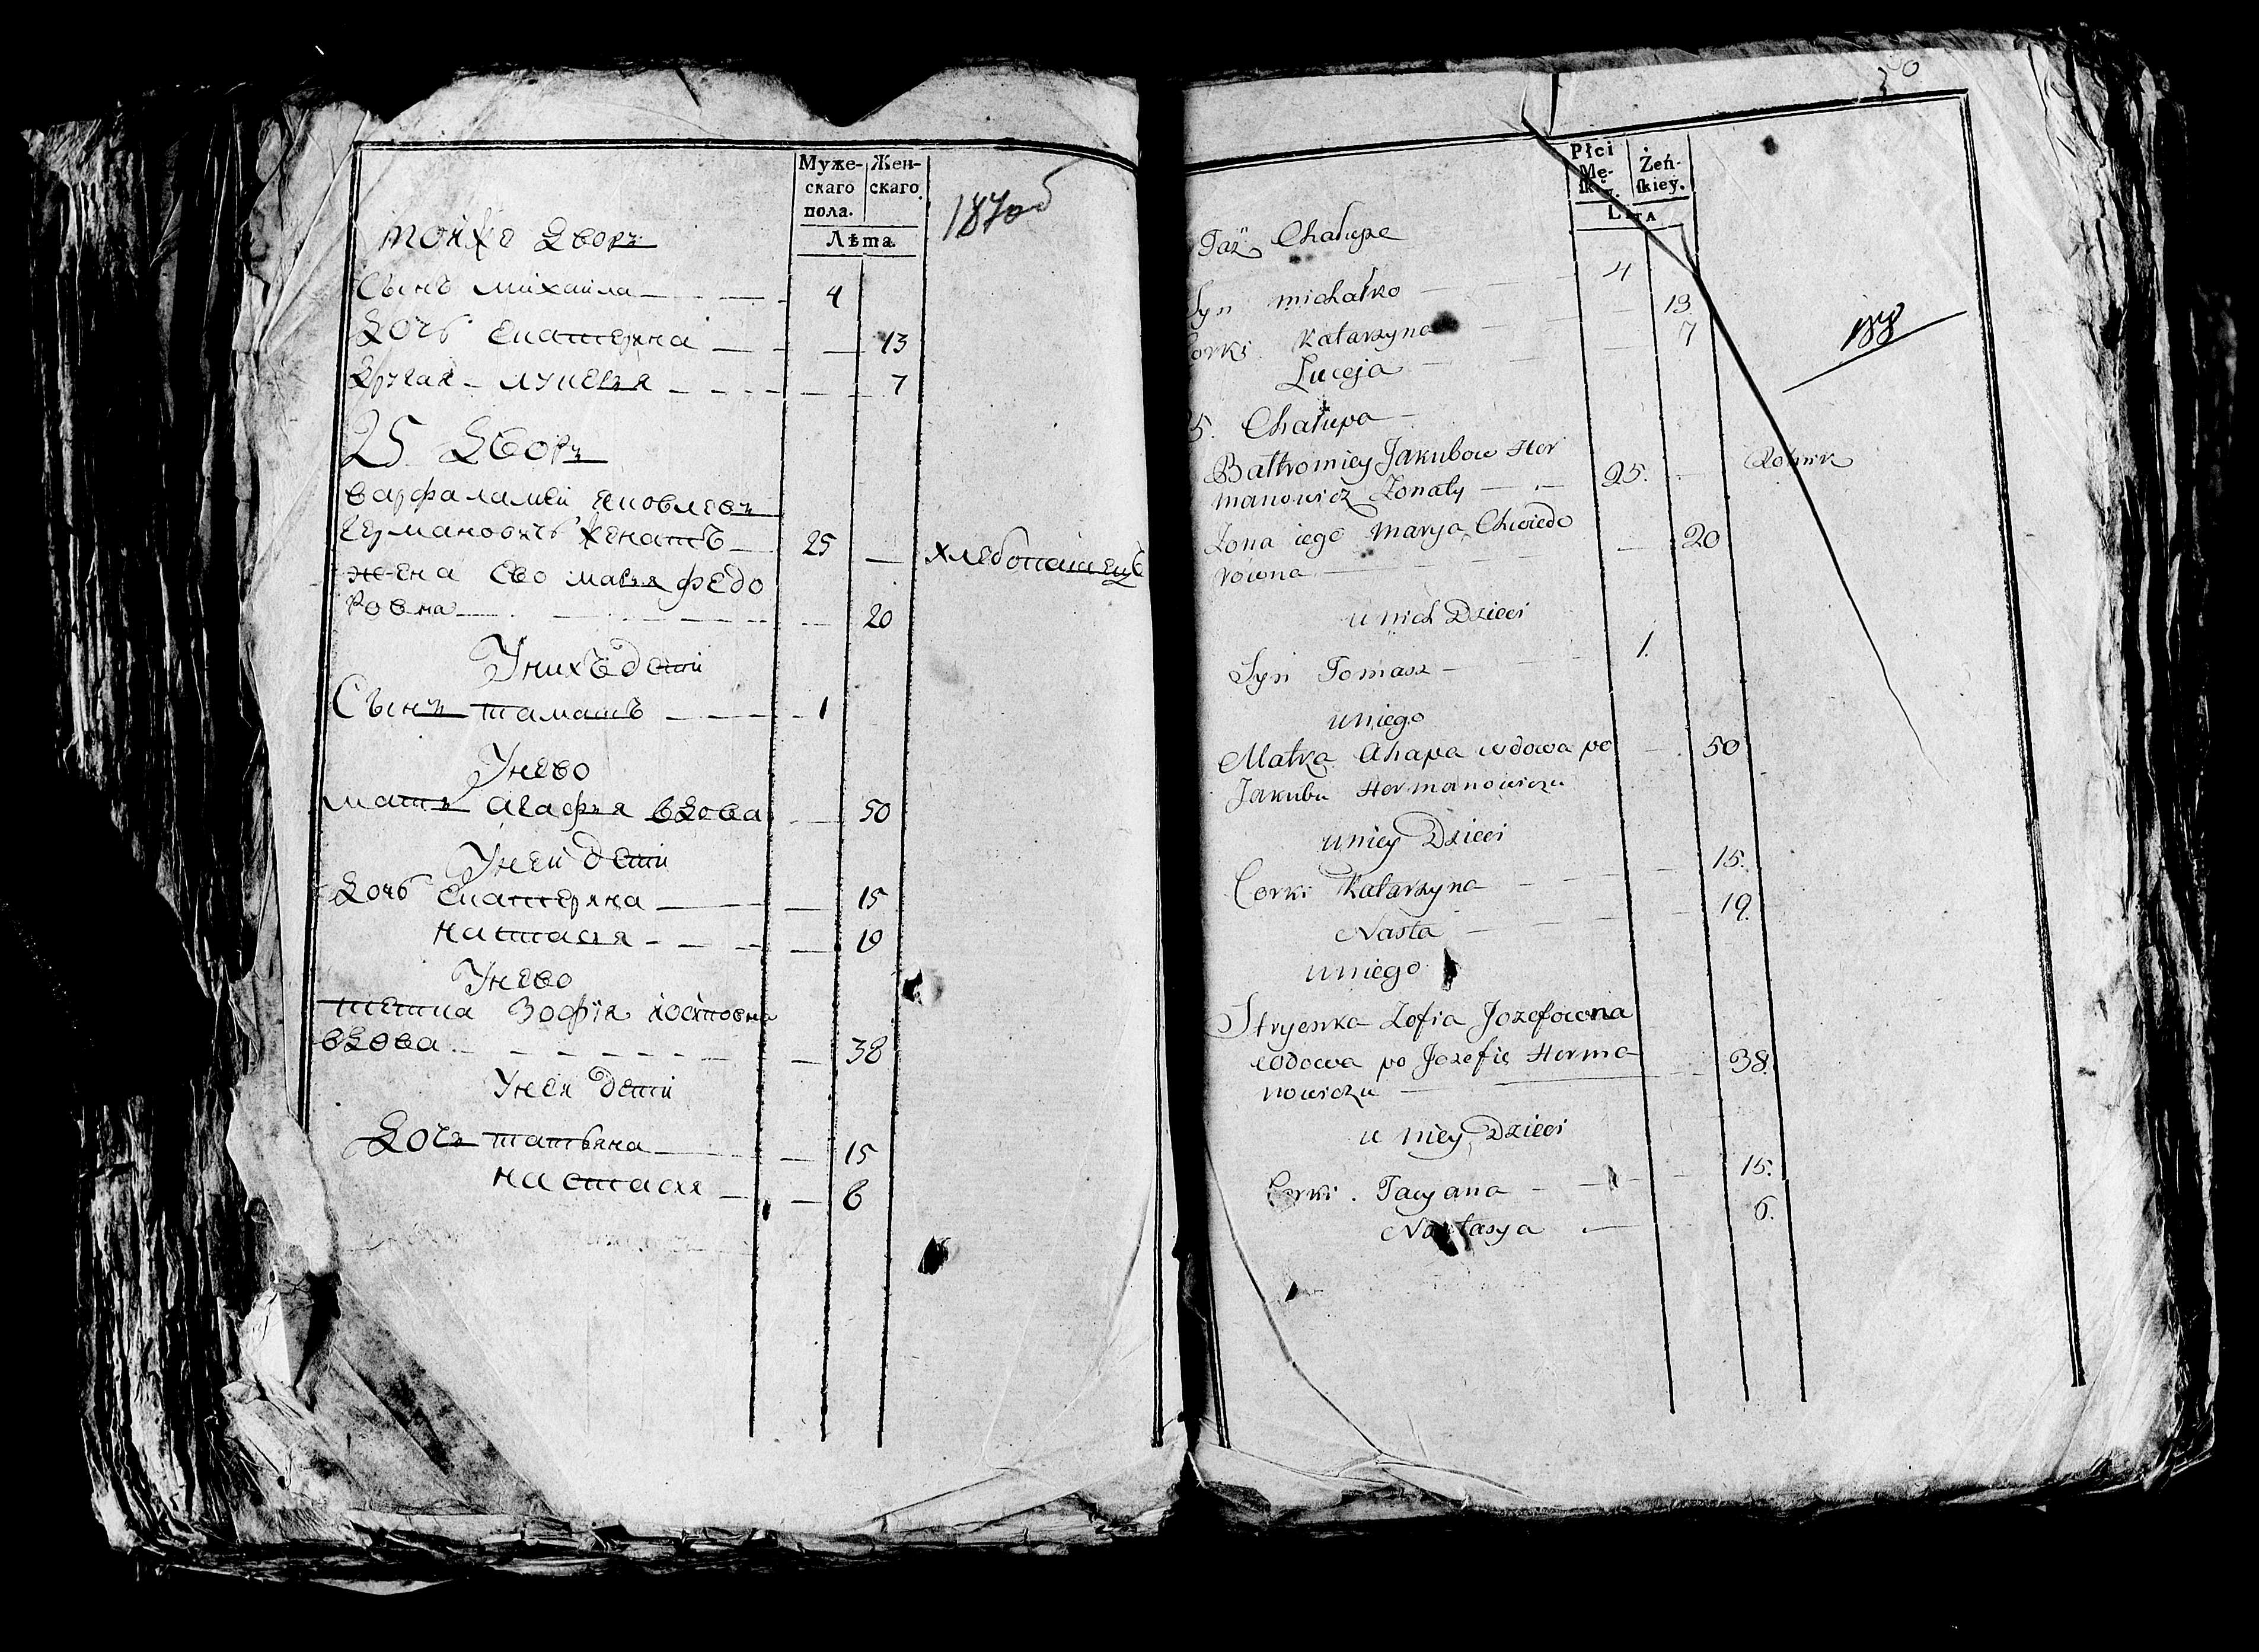 Муже-
скаго
пола.
Жен-
скаго
Лѣта
1870об
тойже дворъ
Сынъ михаила 4
Дочь екатерина 13
Другая луцея 7
25 Дворъ
варфаламей яковлевъ
германовичь женатъ 25 хлебопашецъ
жена ево маръя федо
ровна 20
Унихъ дети
Сынъ тамашъ 1
Унево
мать агафъя вдова 50
Уней дети
Дочь екатерина 15
настася 19
Унево
тетка Зофїя
вдова 38
Унея дети
Дочь татьяна 15
настася 6
Płci
Mę-
Żeń-
ſkiey.
Lata
Taż Chałupa
Syn michałko 4
Corki Katarzyna 13
Luceja 7
25. Chałupa
Bałtromiey Jakubow Her
manowicz Żonaty 25. Rolnik
Żona iego Marya Chwiedo
rowna 20
u nich Dzieci
Syn Tomasz 1.
uniego
Matka Ahapa wdowa po 50
Jakubu Hermanowiczu
uniey Dzieci
Corki Katarzyna 15.
Nasta 19.
uniego
Stryenka Zofia Jozefowna
wdowa po Jozefie Herma 38.
nowiczu
u niey Dzieci
Corki Tacyana 15.
Nastasya 6.